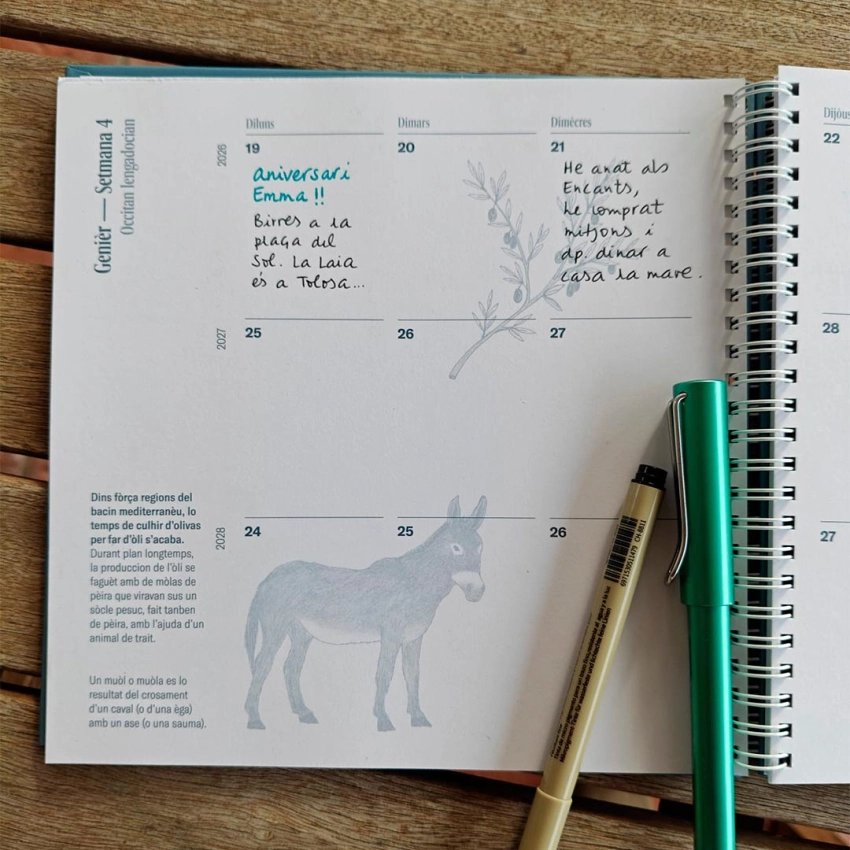 Genièr — Setmana 4
Occitan lengadocian
Diluns
Dimars
Dimècres
Dijòus
2026
19
20
21
22
aniversari
Emma !!
Birres a la
plaça del
Sol. La Laia
és a Tolosa...
He anat als
Encants,
he comprat
mitjons i
dp. dinar a
casa la mare.
2027
25
26
27
28
Dins fòrça regions del
bacin mediterranèu, lo
temps de culhir d'olivas
per far d'òli s'acaba.
Durant plan longtemps,
la produccion de l'òli se
faguèt amb de mòlas de
pèira que viravan sus un
sòcle pesuc, fait tanben
de pèira, amb l'ajuda d'un
animal de trait.
Un muòl o muòla es lo
resultat del crosament
d'un caval (o d'una èga)
amb un ase (o una sauma).
2028
24
25
26
27